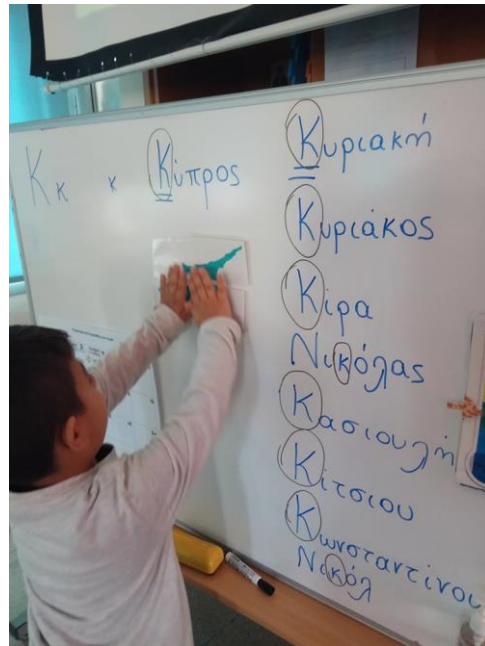 Κ κ κ Κύπρος
Κυριακή
Κυριάκος
Κίρα
Νικόλας
Κασιουλή
Κίτσιου
Κωνσταντίνου
Νικόλ